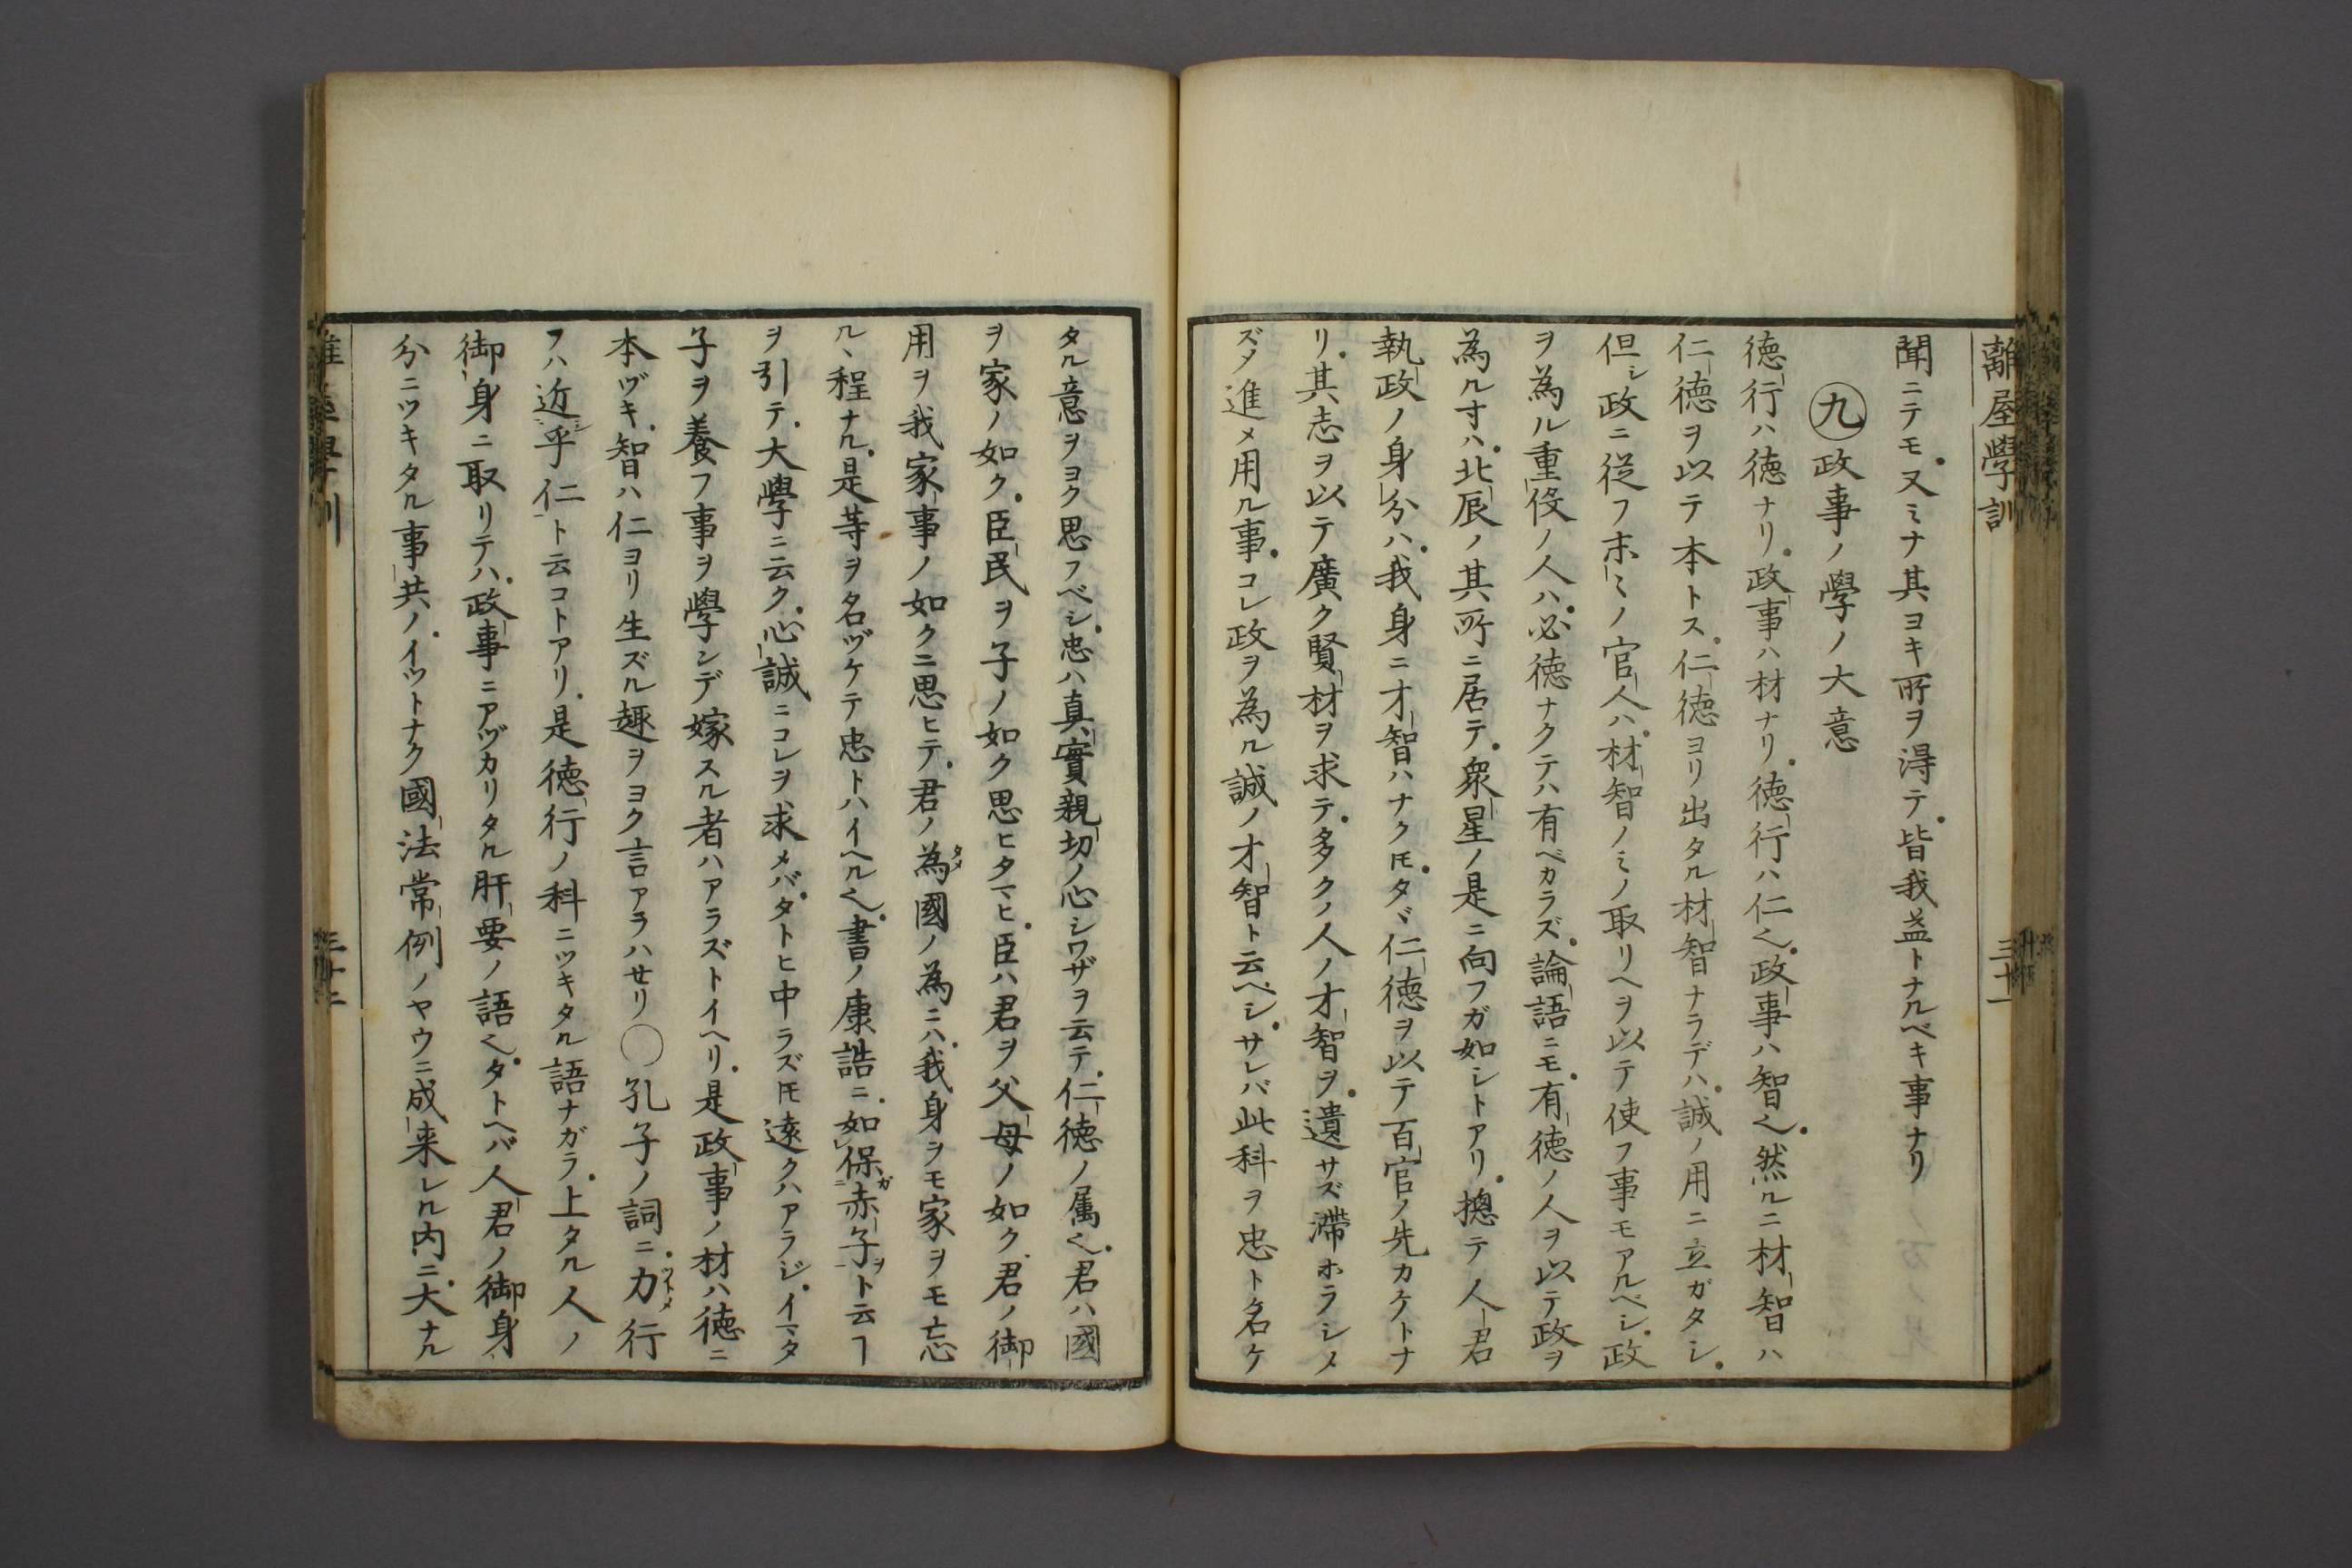 離屋學訓
三十一
聞ニテモ。又ミナ其ヨキ所ヲ得テ。皆我益トナルベキ事ナリ
㊈政事ノ學ノ大意
徳行ハ徳ナリ。政事ハ材ナリ。徳行ハ仁也。政事ハ智也。然ルニ材智ハ
仁徳ヲ以テ本トス。仁徳ヨリ出タル材智ナラデハ。誠ノ用ニ立ガタシ。
但シ政ニ従フホドノ官人ハ。材智ノミノ取リヘヲ以テ使フ事モアルベシ。政
ヲ為ル重役ノ人ハ。必徳ナクテハ有ベカラズ。論語ニモ。有徳ノ人ヲ以テ政ヲ
為ル寸ハ。北辰ノ其所ニ居テ。衆星ノ是ニ向フガ如シトアリ。摠テ人君
執政ノ身分ハ。我身ニ才智ハナクㇳモ。タヾ仁徳ヲ以テ百官ノ先カケトナ
リ。其志ヲ以テ廣ク賢材ヲ求テ。多クノ人ノ才智ヲ。遺サズ滞ホラシメ
ズメ進メ用ル事。コレ政ヲ為ル誠ノ才智ト云ベシ。サレバ此科ヲ忠ト名ケ
タル意ヲヨク思フベシ。忠ハ真實親切ノ心シワザヲ云テ。仁徳ノ属也。君ハ國
ヲ家ノ如ク。臣民ヲ子ノ如ク思ヒタマヒ。臣ハ君ヲ父母ノ如ク。君ノ御
用ヲ我家事ノ如クニ思ヒテ。君ノ為國ノ為ニハ。我身ヲモ家ヲモ忘
ルヽ程ナル。是等ヲ名ヅケテ忠トハイヘル也。書ノ康誥ニ。如保赤子ト云ヿ
ヲ引テ。大學ニ云ク。心誠ニコレヲ求メバ。タトヒ中ラズㇳモ遠クハアラジ。イマタ
子ヲ養フ事ヲ學ンデ嫁スル者ハアラズトイヘリ。是政事ノ材ハ徳ニ
本ヅキ。智ハ仁ヨリ生ズル趣ヲヨク言アラハセリ〇孔子ノ詞ニ。力行
フハ近乎仁ト云コトアリ。是徳行ノ科ニツキタル語ナガラ。上タル人ノ
御身ニ取リテハ。政事ニアヅカリタル肝要ノ語也。タトヘバ人君ノ御身
分ニツキタル事共ノ。イツトナク國法常例ノヤウニ成来レル内ニ。大ナル
三十二